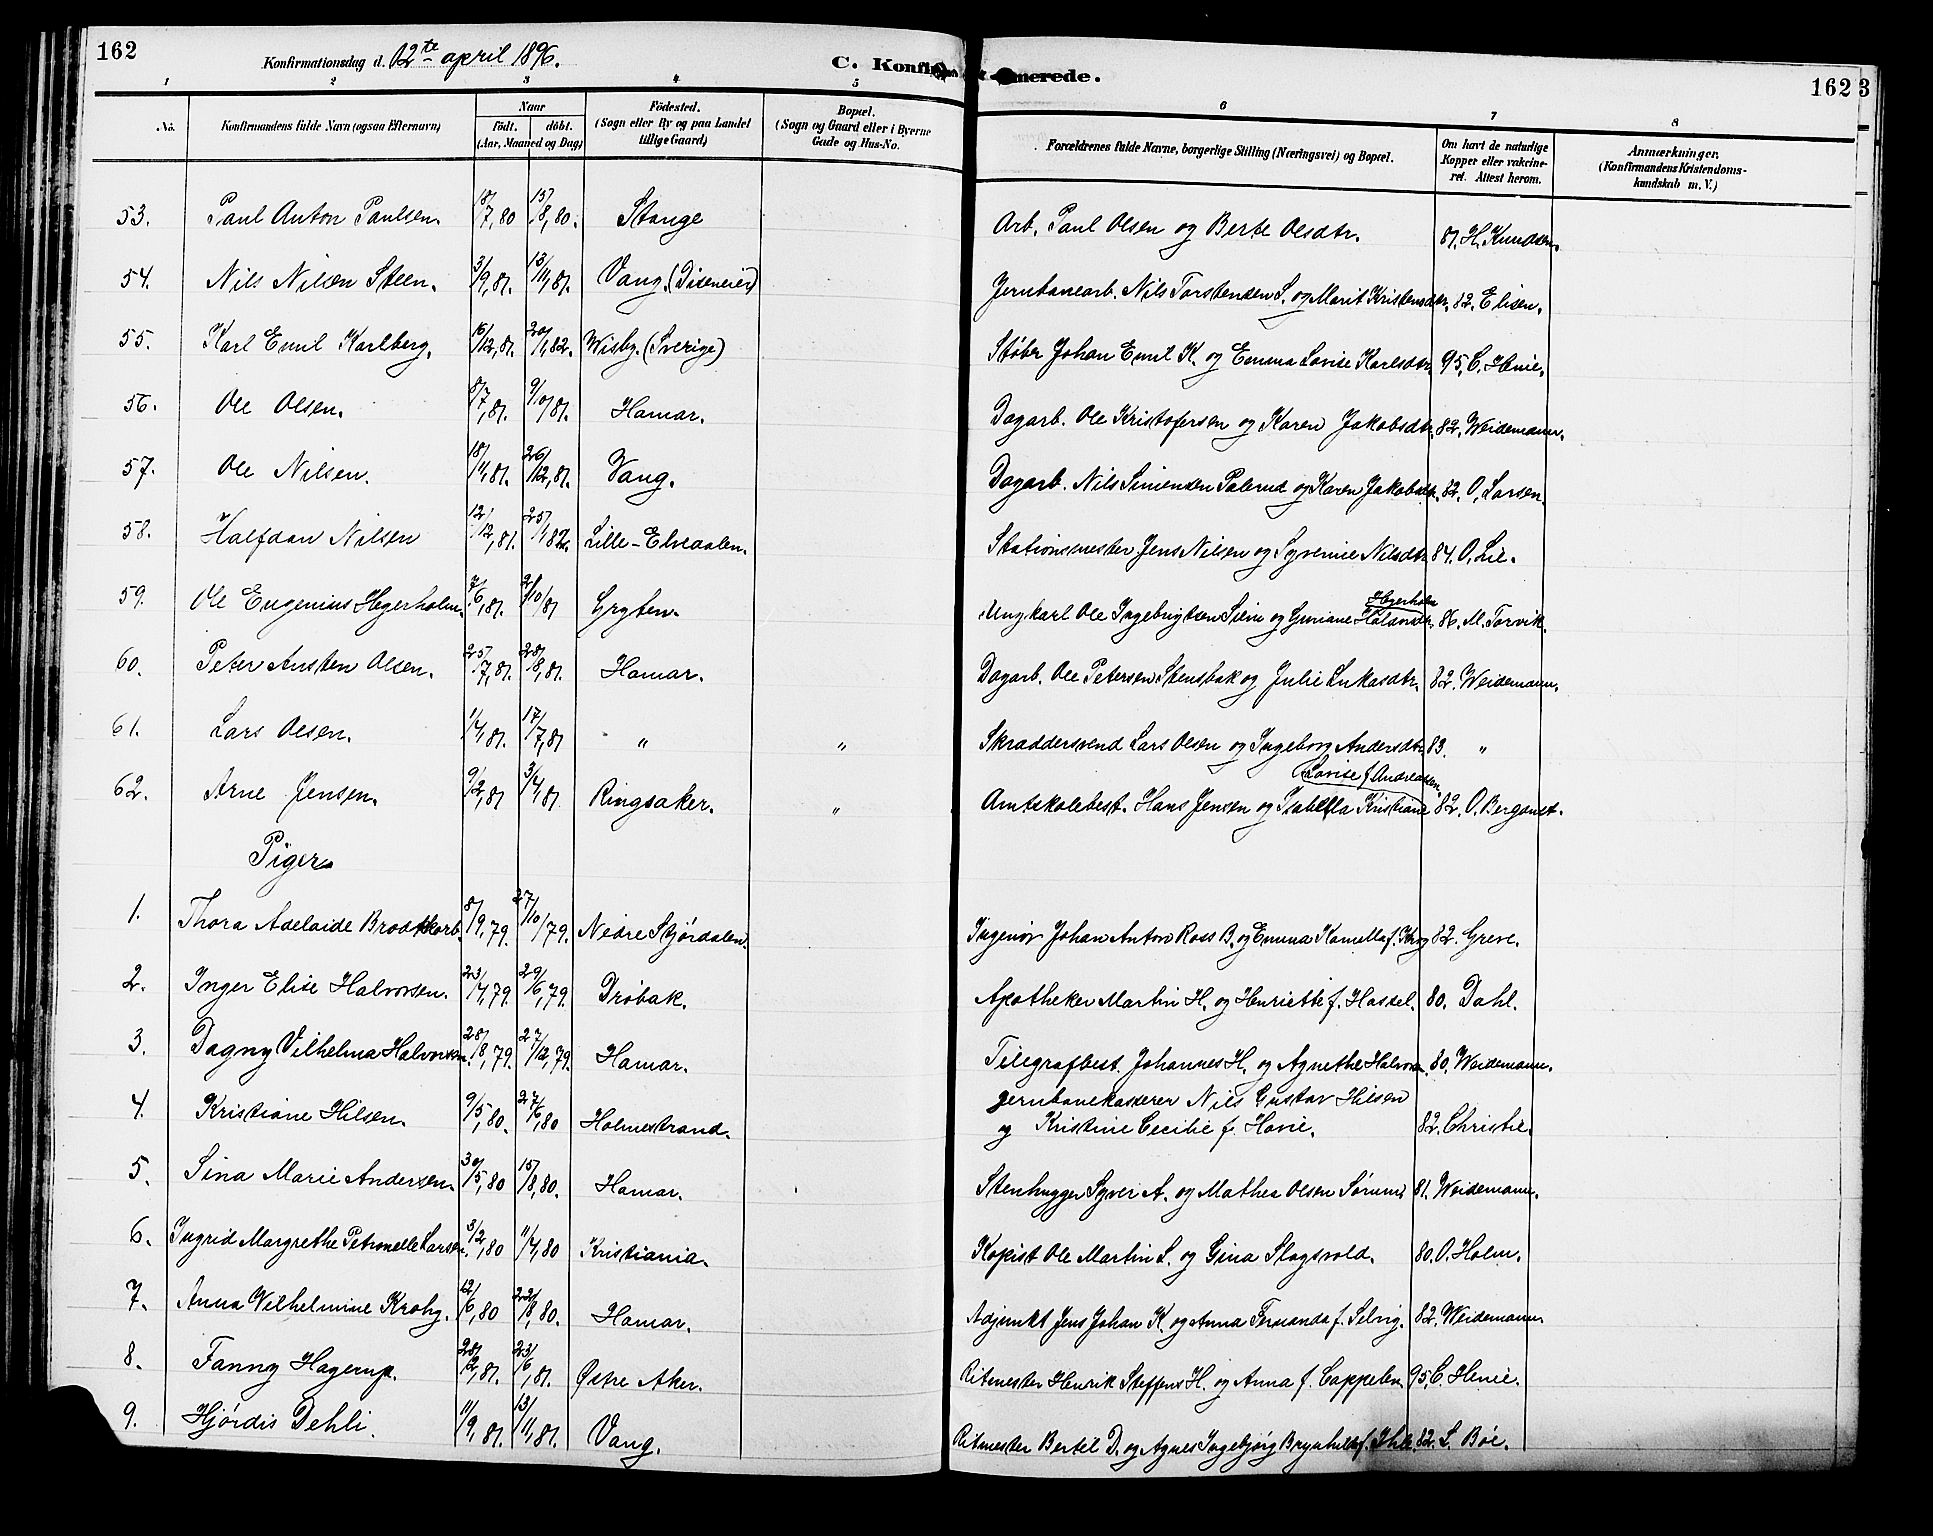 162
Konfirmationsdag d. 12te april 1896.
C. Konfi
merede.
162
3
1 2 3 4 5 6 7 8
No.
Konfirmandens fulde Navn (ogsaa Efternavn)
Naar
födt. döbt.
(Aar, Maaned og Dag)
Födested.
(Sogn eller By og paa Landet
tillige Gaard)
Bopæl.
(Sogn og Gaard eller i Byerne
Gade og Hus-No.
Forældrenes fulde Navne, borgerlige Stilling (Næringsvei) og Bopæl.
Om havt de naturlige
Kopper eller vakcine-
ret. Attest herom.
Anmærkninger.
(Konfirmandens Kristendoms-
kundskab m. V.)
53. Paul Anton Paulsen. 18/7,80 15/8,80. Stange Arb. Paul Olsen og Berte Olsdtr. 81. H. Knudsen.
54. Nils Nilsen Steen. 3/9,81. 13/11,81. Vang. (Diseneier) Jernbanearb. Nils Torstensen S. og Marit Kristensdtr. 82. Elisen.
55. Karl Emil Karlberg. 16/12,81. 20/1,82. Wisby. (Sverige) Støber Johan Emil K. og Emma Lovise Karlsdtr. 95. C. Henie.
56. Ole Olsen. 8/7,81. 9/10/81. Hamar. Dagarb. Ole Kristofersen og Karen Jakobsdtr. 82. Weidemann.
57. Ole Nilsen. 18/4,81. 26/12,81. Vang. Dagarb. Nils Simensen og Karen Jakobsdtr. 82. O. Larsen.
58. Halfdan Nilsen 12/12,81. 25/1,82. Lille-Elvedalen. Stationsmester Jens Nilsen og Syverine Nilsdtr. 84. O. Lie.
59. Ole Eugenius Hegerholm. 7/6,81. 2/10/81 Gryten. Ungkarl Ole Ingebrigtsen og Guriane Hegerholm 86. M. Torvik.
60. Peter Austen Olsen. 25/7,81. 28/8,81. Hamar. Dagarb. Ole Petersen Stensbak og Julie Lukasdtr. 82. Weidemann.
61. Lars Olsen. 1/4,81. 17/7,81 " " Skræddersvend Lars Olsen og Ingeborg Andersdtr 83. "
Lovise f. Andreassen.
62. Arne Jensen. 9/2,81 3/4,81 Ringsaker. " Amtskolebest. Hans Jensen og Isabella Kristiane 82. O. Berganst.
Piger
1. Thora Adelaide Brodtkorb. 8/9,79. 27/10/79. Nedre Stjørdalen. Ingeniør Johan Anton Ross B. og Emma Kamilla f. Krog 82. Greve.
2. Inger Elise Halvorsen. 23/4,79. 29/6,79. Drøbak. Apotheker Martin H. og Henriette f. Hassel. 80. Dahl.
3. Dagny Vilhelma Halvorsen. 28/8,79. 27/12,79. Hamar. Telegrafbest. Johannes H. og Agnethe Halvorsn. 80. Weidemann.
4. Kristiane Hilsen. 9/5,80. 27/6,80 Holmestrand. Jernbanekasserer Nils Gustav Hilsen
og Kristine Cecilie f. Hovie. 82. Christie.
5. Sina Marie Andersen. 30/5,80 15/8,80. Hamar. Stenhugger Syver A. og Mathea Olsen 81. Weidemann.
6. Ingrid Margrethe Petronelle Larsen. 3/2,80 11/4,80 Kristiania. Kopist Ole Martin L. og Gina Slagsvold. 80. O. Holm.
7. Anna Vilhelmine Krohg. 12/6,80 22/8,80. Hamar. Adjunkt Jens Johan K. og Anna Fernanda f. Selvig. 82. Weidemann
8. Fanny Hagerup. 28/2,81. 23/6,81. Østre Aker. Ritmester Henrik Steffens H. og Anna f. Cappelen 95. C. Henie.
9. Hjørdis Dehli. 11/9,81. 13/11,81. Vang. Ritmester Bertel D. og Agnes Ingebjørg Brynhilde f. Ihle. 82. L. Bøe.